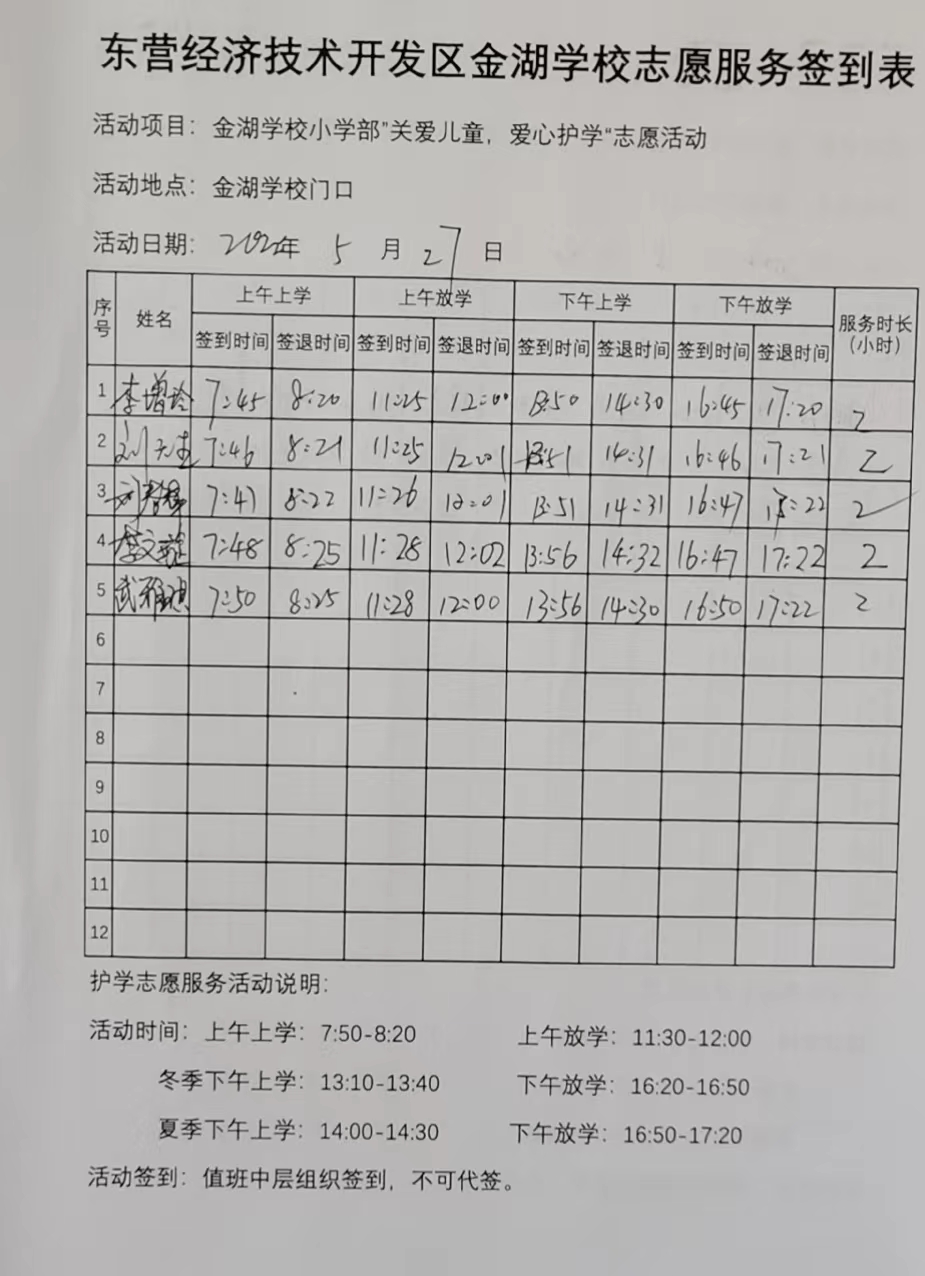 东营经济技术开发区金湖学校志愿服务签到表
活动项目：金湖学校小学部"关爱儿童，爱心护学"志愿活动
活动地点：金湖学校门口
活动日期： 年 5 月 27 日
序号 姓名 上午上学 上午放学 下午上学 下午放学 服务时长（小时）
签到时间 签退时间 签到时间 签退时间 签到时间 签退时间 签到时间 签退时间
1 7:45 8:20 11:25 12:00 13:50 14:30 16:45 17:20 2
2 7:46 8:21 11:25 12:01 13:51 14:31 16:46 17:21 2
3 7:47 8:22 11:26 12:01 13:51 14:31 16:47 17:22 2
4 李文 7:48 8:25 11:28 12:02 13:56 14:32 16:47 17:22 2
5 武雅 7:50 8:25 11:28 12:00 13:56 14:30 16:50 17:22 2
6
7
8
9
10
11
12
护学志愿服务活动说明：
活动时间：上午上学：7:50-8:20 上午放学：11:30-12:00
冬季下午上学：13:10-13:40 下午放学：16:20-16:50
夏季下午上学：14:00-14:30 下午放学：16:50-17:20
活动签到：值班中层组织签到，不可代签。